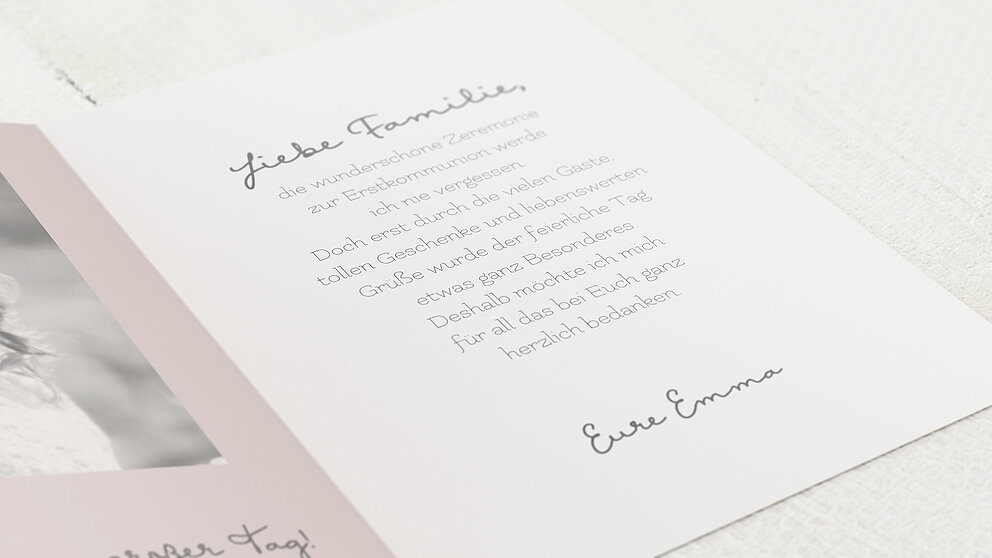 Liebe Familie,
die wunderschöne Zeremonie
zur Erstkommunion werde
ich nie vergessen.
Doch erst durch die vielen Gäste,
tollen Geschenke und liebenswerten
Grüße wurde der feierliche Tag
etwas ganz Besonderes.
Deshalb möchte ich mich
für all das bei Euch ganz
herzlich bedanken.
Eure Emma
großer Tag!